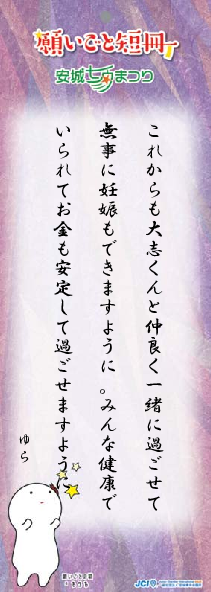 願いごと短冊
安城七夕まつり
これからも大志くんと仲良く一緒に過ごせて
無事に妊娠もできますように。みんな健康で
いられてお金も安定して過ごせますように
ゆら
JCI